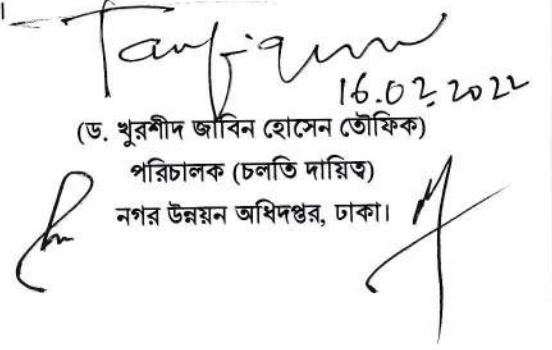 16.02.2022
(ড. খুরশীদ জাবিন হোসেন তৌফিক)
পরিচালক (চলতি দায়িত্ব)
নগর উন্নয়ন অধিদপ্তর, ঢাকা।